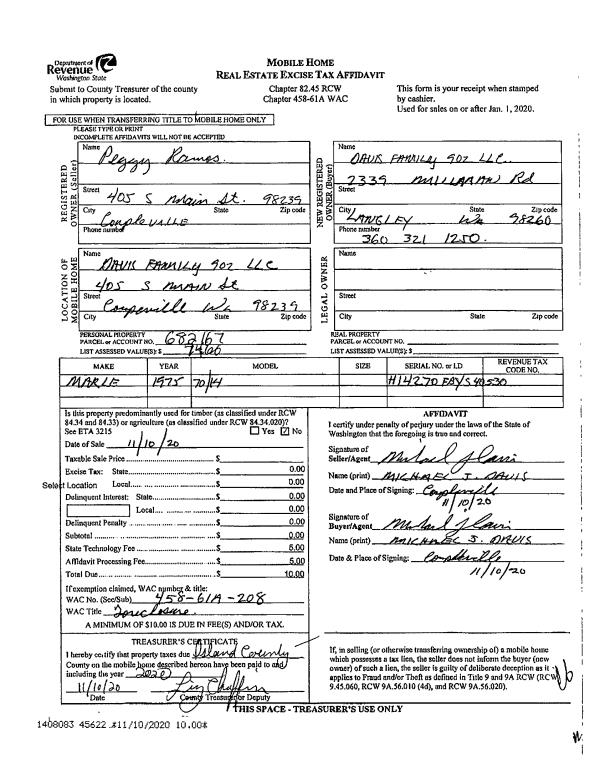 Department of
Revenue
Washington State
MOBILE HOME
REAL ESTATE EXCISE TAX AFFIDAVIT
Submit to County Treasurer of the county
in which property is located.
Chapter 82.45 RCW
Chapter 458-61A WAC
This form is your receipt when stamped
by cashier.
Used for sales on or after Jan. 1, 2020.
FOR USE WHEN TRANSFERRING TITLE TO MOBILE HOME ONLY
PLEASE TYPE OR PRINT
INCOMPLETE AFFIDAVITS WILL NOT BE ACCEPTED
REGISTERED
OWNER (Seller)
Name
Peggy Ramos
Street
405 S Main St. 98239
City State Zip code
Coupleville
Phone number
NEW REGISTERED
OWNER (Buyer)
Name
DAVIS FAMILY 902 LLC
2339 Rd
Street
City State Zip code
LANGLEY Wa 98260
Phone number
360 321 1250
LOCATION OF
MOBILE HOME
Name
DAVIS FAMILY 902 LLC
405 S MAIN St
Street
Coupeville Wa 98239
City State Zip code
LEGAL OWNER
Name
Street
City State Zip code
PERSONAL PROPERTY
PARCEL or ACCOUNT NO. 682167
LIST ASSESSED VALUE(S): $
REAL PROPERTY
PARCEL or ACCOUNT NO.
LIST ASSESSED VALUE(S): $
MAKE YEAR MODEL SIZE SERIAL NO. or I.D REVENUE TAX
CODE NO.
MARLE 1975 70/14
Is this property predominantly used for timber (as classified under RCW
84.34 and 84.33) or agriculture (as classified under RCW 84.34.020)?
See ETA 3215 Yes No
Date of Sale 11/10/20
Taxable Sale Price $
Excise Tax: State $ 0.00
Select Location Local $ 0.00
Delinquent Interest: State $ 0.00
Local $ 0.00
Delinquent Penalty $ 0.00
Subtotal $ 0.00
State Technology Fee $ 5.00
Affidavit Processing Fee $ 5.00
Total Due $ 10.00
If exemption claimed, WAC number & title:
WAC No. (Sec/Sub) 458-61A-208
WAC Title Foreclosure
A MINIMUM OF $10.00 IS DUE IN FEE(S) AND/OR TAX.
AFFIDAVIT
I certify under penalty of perjury under the laws of the State of
Washington that the foregoing is true and correct.
Signature of
Seller/Agent Michael J Davis
Name (print) MICHAEL J. DAVIS
Date and Place of Signing: Coupleville
11/10/20
Signature of
Buyer/Agent Michael J Davis
Name (print) MICHAEL J. DAVIS
Date & Place of Signing:
11/10/20
TREASURER'S CERTIFICATE
I hereby certify that property taxes due Island County
County on the mobile home described hereon have been paid to and
including the year 2020
11/10/20
Date County Treasurer or Deputy
If, in selling (or otherwise transferring ownership of) a mobile home
which possesses a tax lien, the seller does not inform the buyer (new
owner) of such a lien, the seller is guilty of deliberate deception as it
applies to Fraud and/or Theft as defined in Title 9 and 9A RCW (RCW
9.45.060, RCW 9A.56.010 (4d), and RCW 9A.56.020).
THIS SPACE - TREASURER'S USE ONLY
1408083 45622 #11/10/2020 10.00*